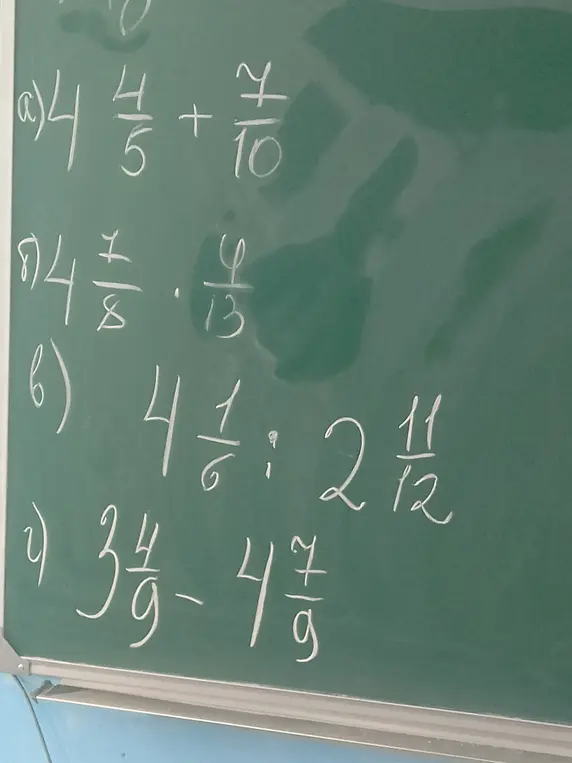 а) 4 4/5 + 7/10
б) 4 7/8 · 4/13
в) 4 1/6 : 2 11/12
г) 3 4/9 - 4 7/9